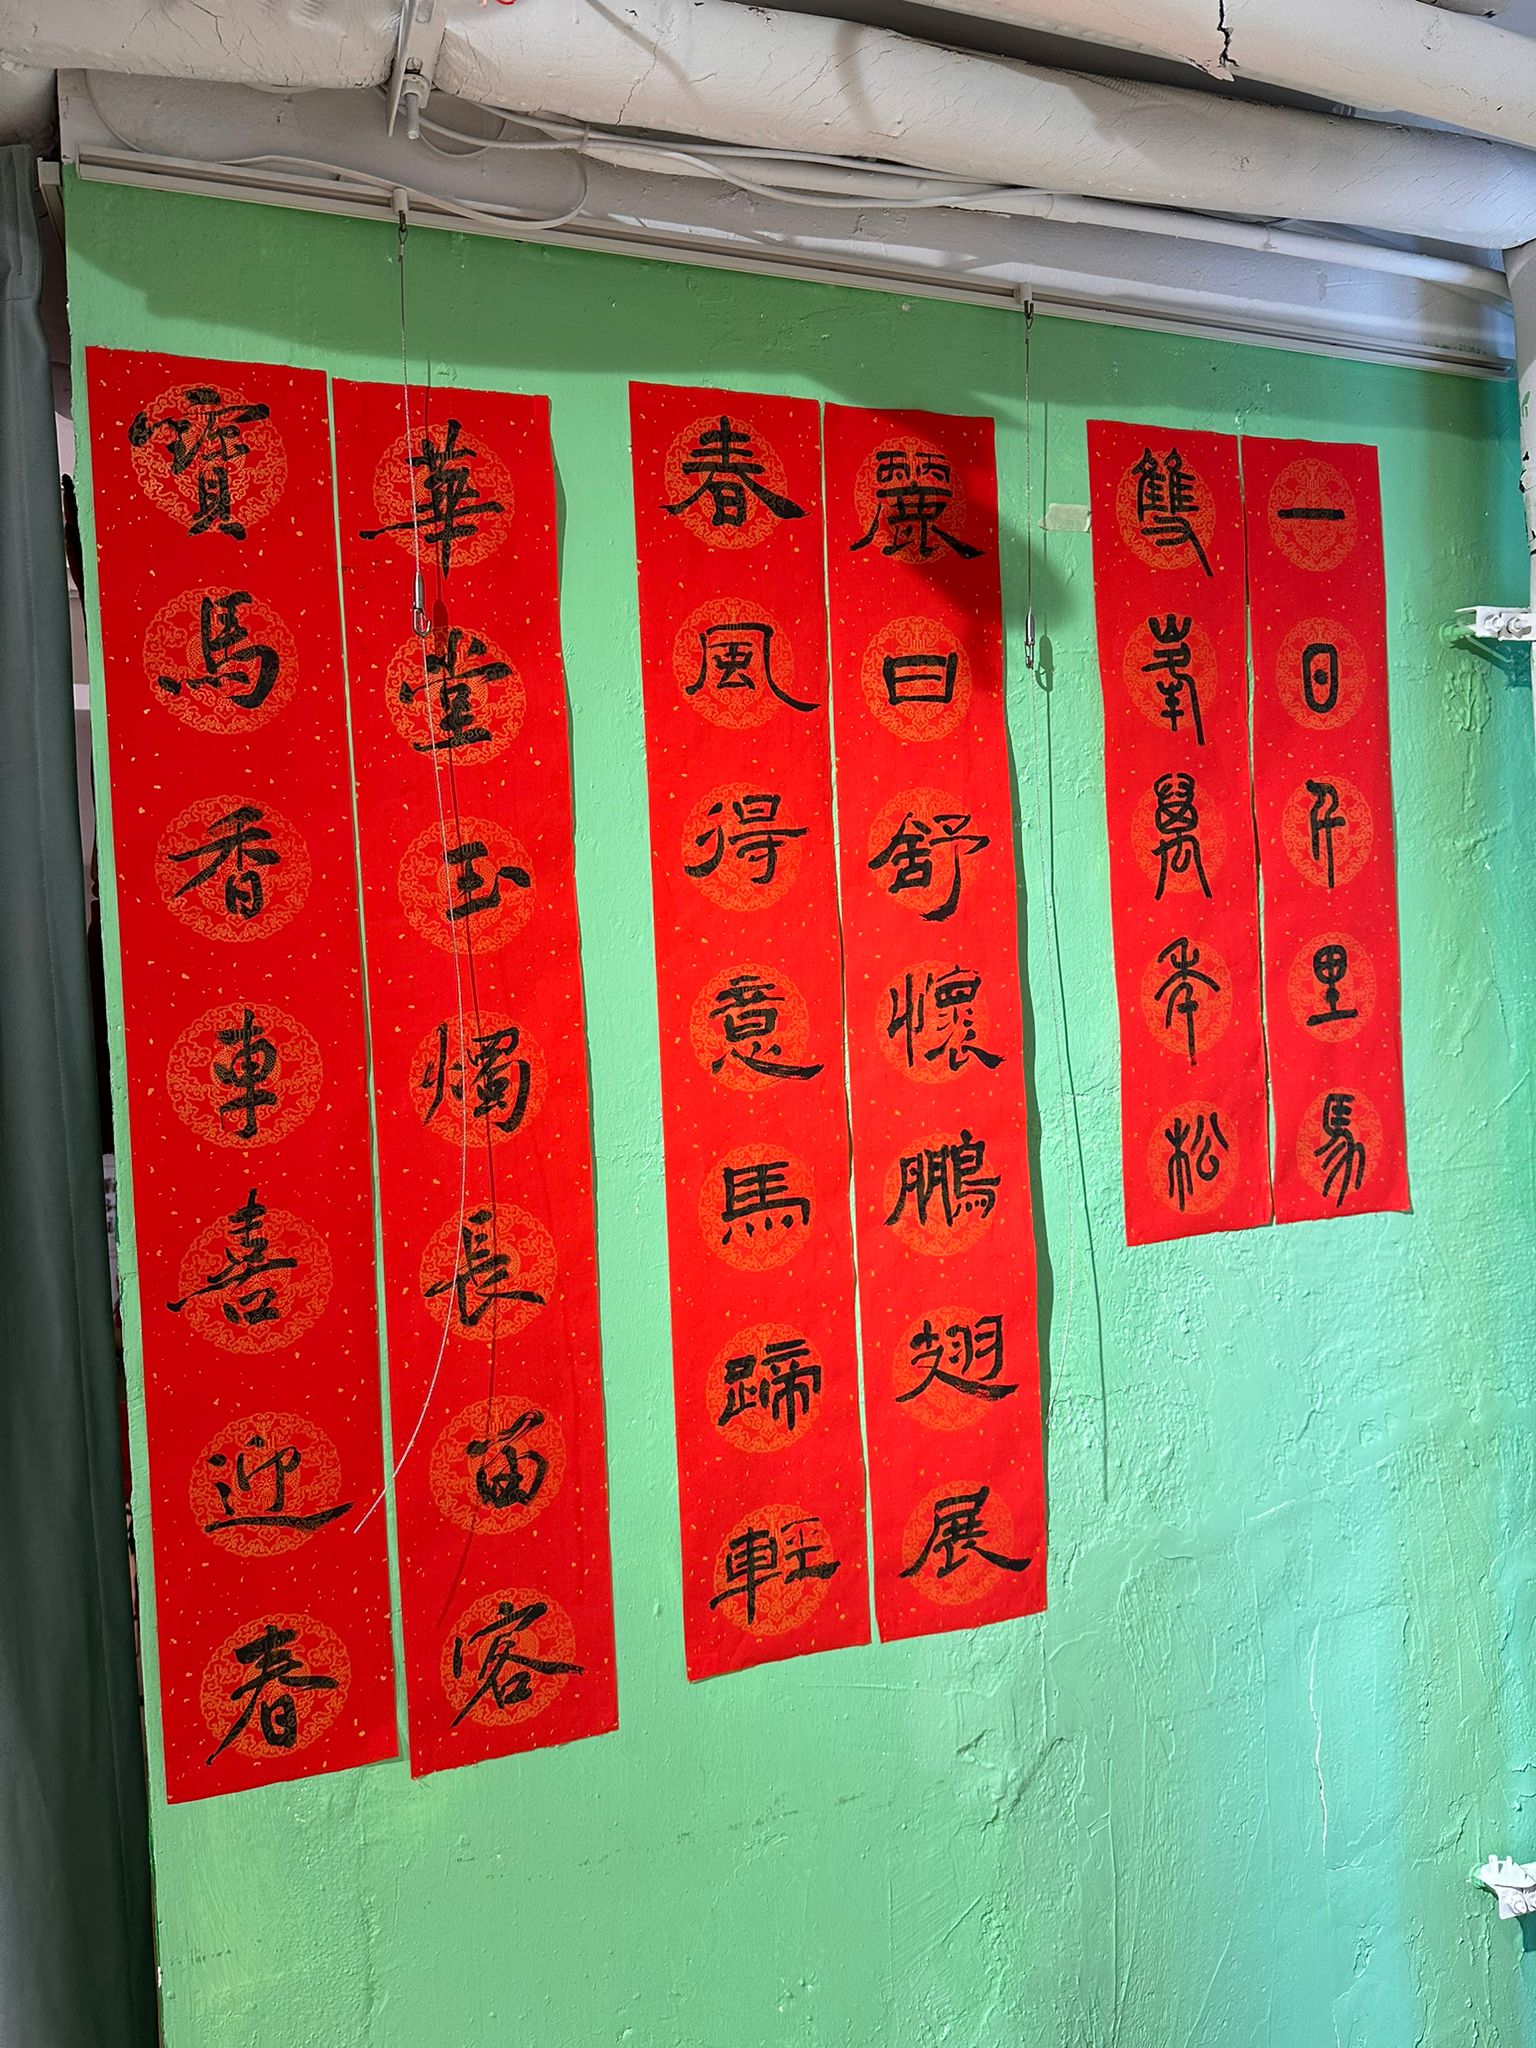 一日千里馬
雙峯萬年松
麗日舒懷鵬翅展
春風得意馬蹄輕
華堂玉燭長留客
寶馬香車喜迎春